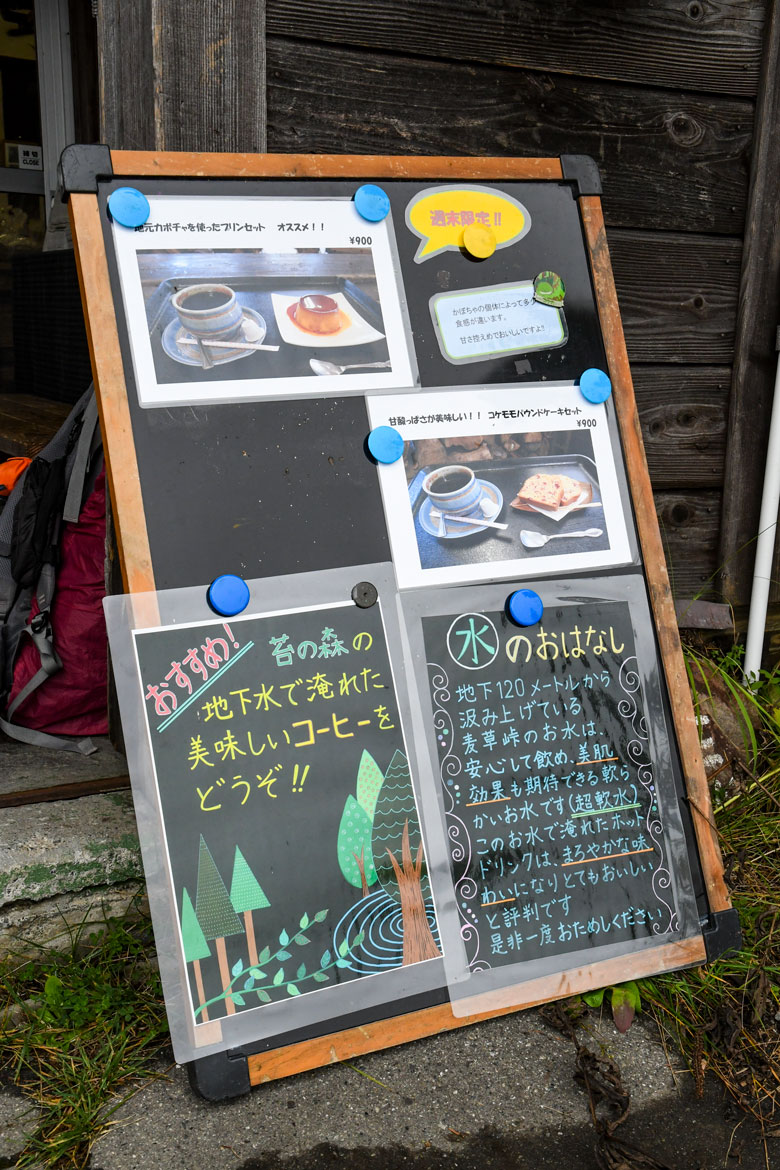 CLOSE
地元カボチャを使ったプリンセット オススメ！！
¥900
週末限定!!
かぼちゃの個体によって多少
食感が違います。
甘さ控えめでおいしいですよ!!
甘酸っぱさが美味しい！！ コケモモパウンドケーキセット
¥900
おすすめ!
苔の森の
地下水で淹れた
美味しいコーヒーを
どうぞ!!
水のおはなし
地下120メートルから
汲み上げている
麦草峠のお水は、
安心して飲め、美肌
効果も期待できる軟ら
かいお水です(超軟水)
このお水で淹れたホット
ドリンクは、まろやかな味
わいになりとてもおいしい
と評判です
是非一度おためしください